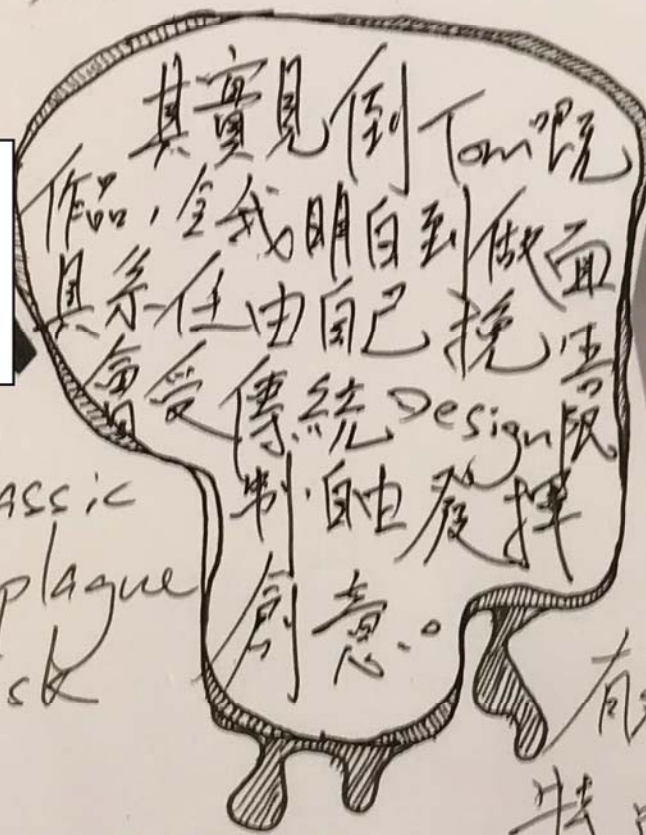 其實見倒Tom嘅
作品,令我明白到做面
具系任由自己挽唔
會受傳統Design限
制,自由發揮
創意。
assic
plague
sk
有
特